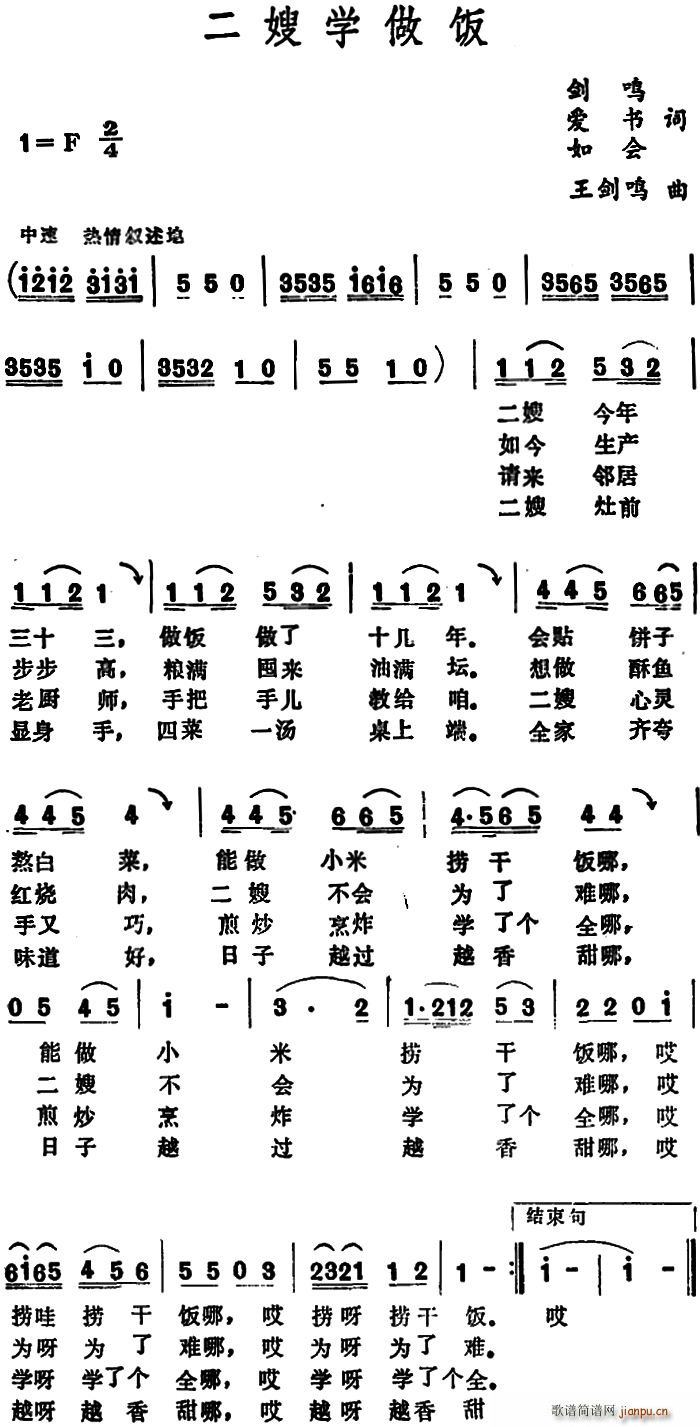 二嫂学做饭
剑 鸣
爱 书 词
如 会
1=F 2/4
王剑鸣 曲
中速 热情叙述地
(i2i2 3i3i | 5 5 0 | 3535 i6i6 | 5 5 0 | 3565 3565 |
3535 i 0 | 3532 1 0 | 5 5 1 0 ) | 1 1 2 5 3 2 |
二嫂 今年
如今 生产
请来 邻居
二嫂 灶前
1 1 2 1 | 1 1 2 5 3 2 | 1 1 2 1 | 4 4 5 6 6 5
三十 三, 做饭 做了 十几 年。 会贴 饼子
步步 高, 粮满 囤来 油满 坛。 想做 酥鱼
老厨 师, 手把 手儿 教给 咱。 二嫂 心灵
显身 手, 四菜 一汤 桌上 端。 全家 齐夸
4 4 5 4 | 4 4 5 6 6 5 | 4·5 6 5 4 4 |
熬白 菜, 能做 小米 捞 干 饭哪,
红烧 肉, 二嫂 不会 为 了 难哪,
手又 巧, 煎炒 烹炸 学 了个 全哪,
味道 好, 日子 越过 越 香 甜哪,
0 5 4 5 | i - | 3 · 2 | 1·212 5 3 | 2 2 0 i |
能 做 小 米 捞 干 饭哪, 哎
二 嫂 不 会 为 了 难哪, 哎
煎 炒 烹 炸 学 了个 全哪, 哎
日 子 越 过 越 香 甜哪, 哎
结束句
6i65 4 5 6 | 5 5 0 3 | 2321 1 2 | 1 - :‖ i - | i - ‖
捞哇 捞 干 饭哪, 哎 捞呀 捞干 饭。 哎
为呀 为 了 难哪, 哎 为呀 为了 难。
学呀 学了个 全哪, 哎 学呀 学了个 全。
越呀 越 香 甜哪, 哎 越呀 越香 甜
歌谱简谱网
jianpu.cn